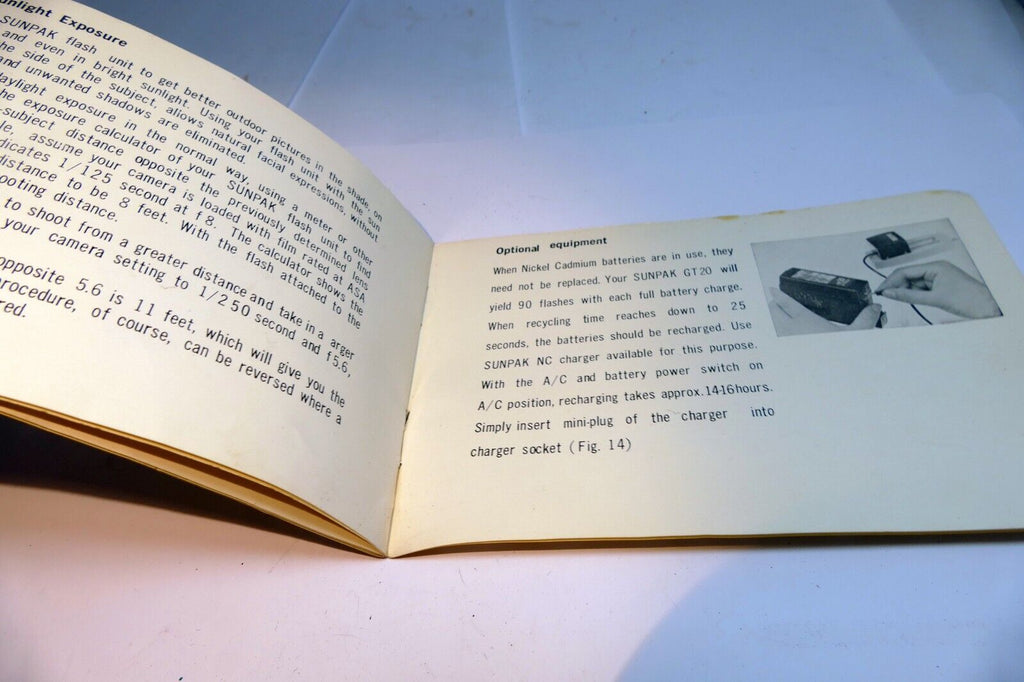 unlight Exposure
SUNPAK flash unit to get better outdoor pictures in the shade, on
and even in bright sunlight. Using your flash unit with the sun
he side of the subject, allows natural facial expressions, without
nd unwanted shadows are eliminated.
aylight exposure in the normal way, using a meter or other
he exposure calculator of your SUNPAK flash unit to find
-subject distance opposite the previously determined lens
le, assume your camera is loaded with film rated at ASA
dicates 1/125 second at f 8. The calculator shows the
distance to be 8 feet. With the flash attached to the
ooting distance.
to shoot from a greater distance and take in a arger
your camera setting to 1/250 second and f 5.6,
opposite 5.6 is 11 feet, which will give you the
rocedure, of course, can be reversed where a
red.
Optional equipment
When Nickel Cadmium batteries are in use, they
need not be replaced. Your SUNPAK GT20 will
yield 90 flashes with each full battery charge.
When recycling time reaches down to 25
seconds, the batteries should be recharged. Use
SUNPAK NC charger available for this purpose.
With the A/C and battery power switch on
A/C position, recharging takes approx.14-16hours.
Simply insert mini-plug of the charger into
charger socket (Fig. 14)